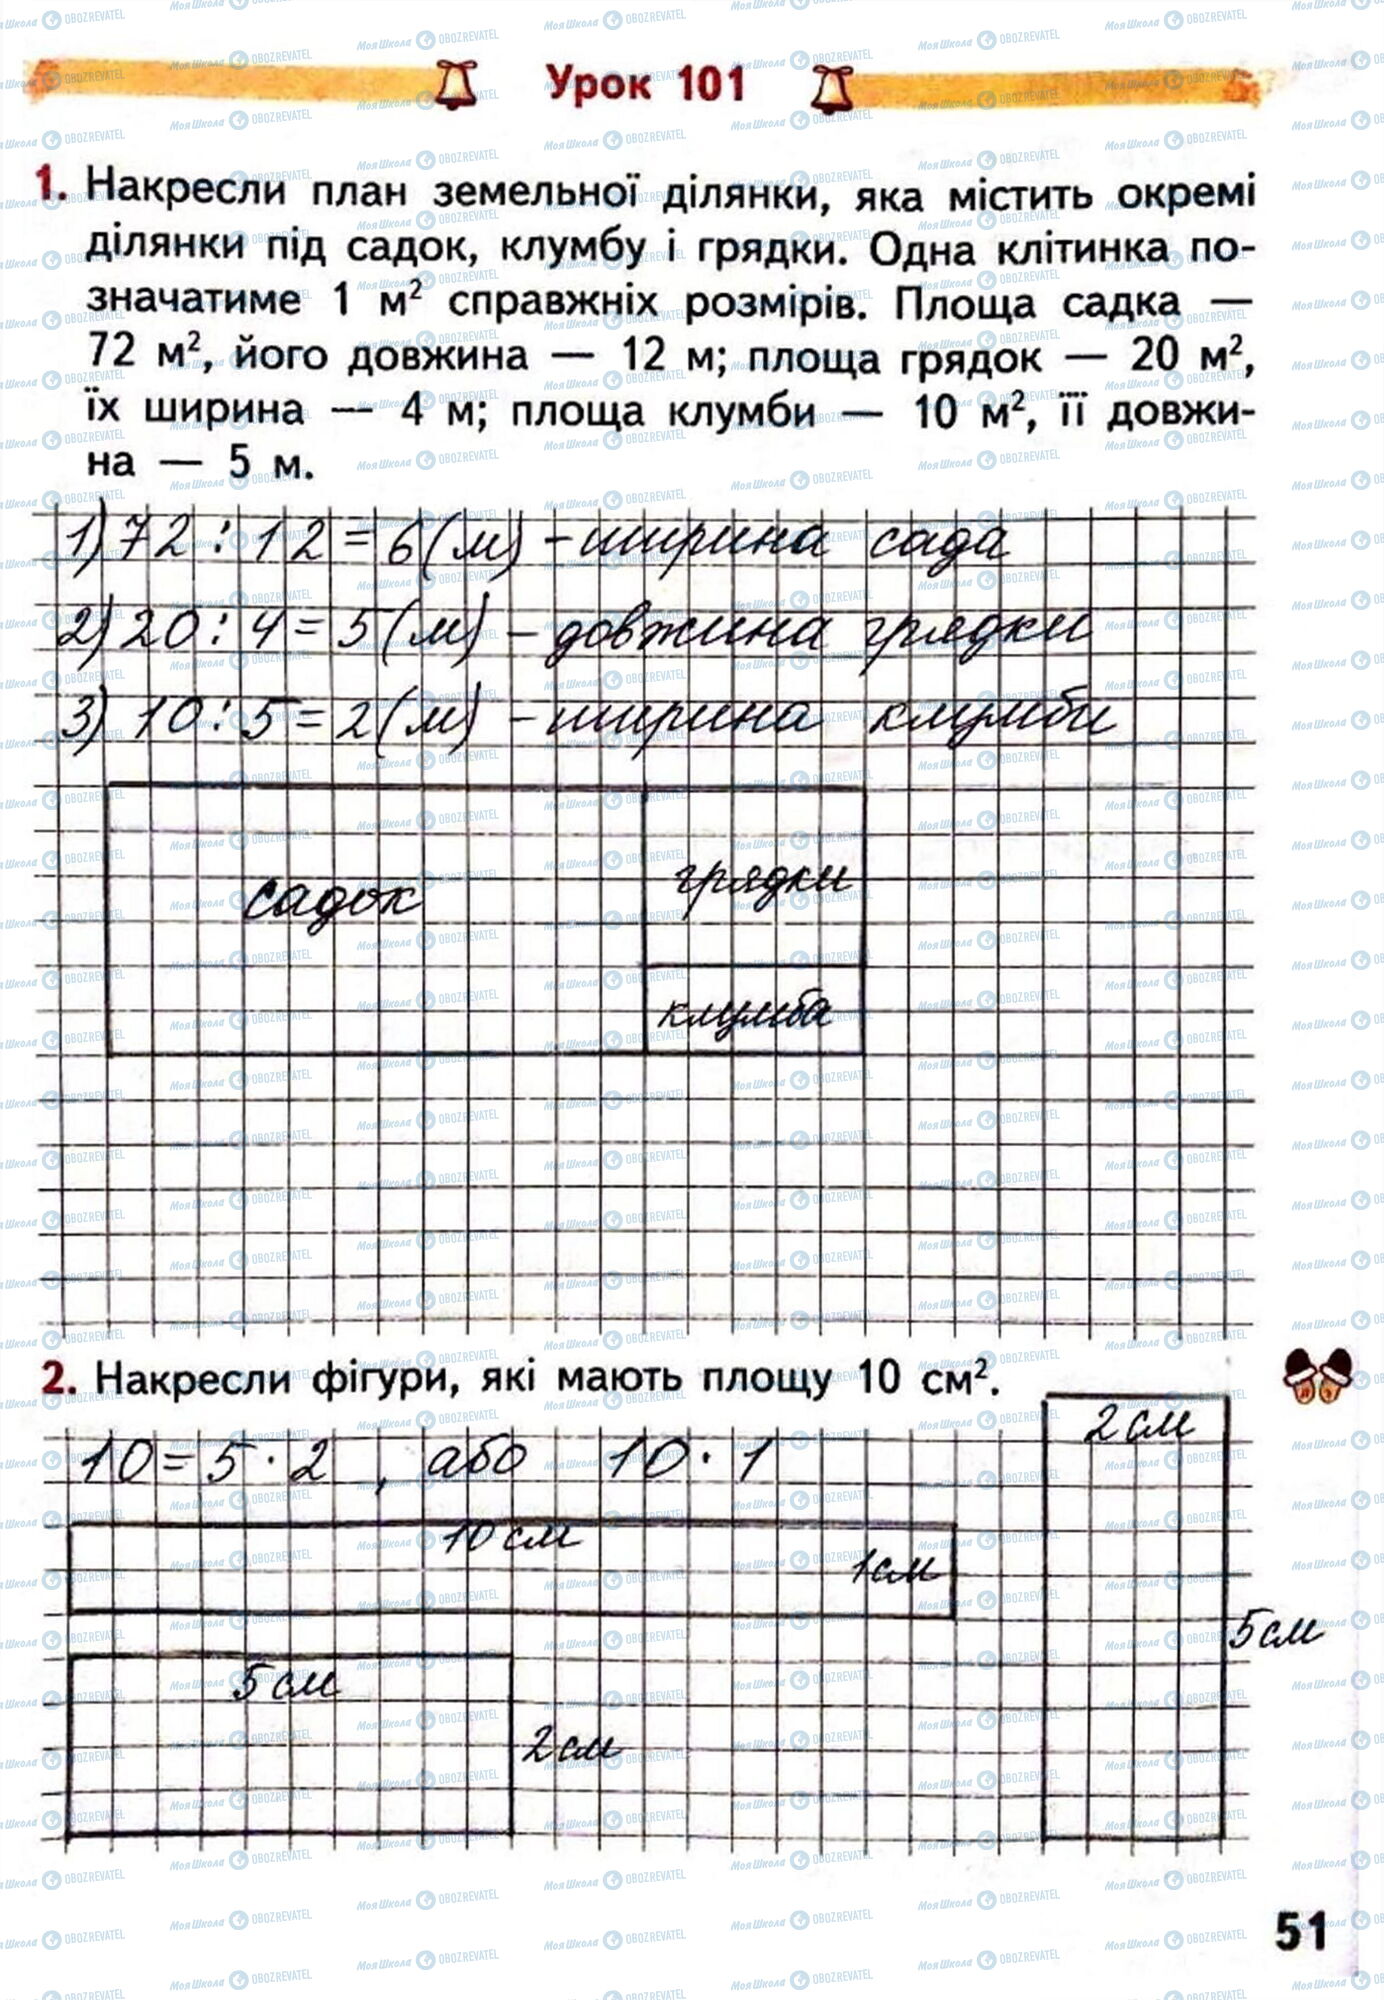 Урок 101
1. Накресли план земельної ділянки, яка містить окремі
ділянки під садок, клумбу і грядки. Одна клітинка по-
значатиме 1 м², справжніх розмірів. Площа садка —
72 м², його довжина — 12 м; площа грядок — 20 м²,
їх ширина — 4 м; площа клумби — 10 м², її довжи-
на — 5 м.
1) 72 : 12 = 6 (м) - ширина сада
2) 20 : 4 = 5 (м) - довжина грядки
3) 10 : 5 = 2 (м) - ширина клумби
садок
грядки
клумба
2. Накресли фігури, які мають площу 10 см².
10 = 5 · 2 , або 10 · 1
2 см
10 см
1 см
5 см
5 см
2 см
51
МояШкола OBOZREVATEL